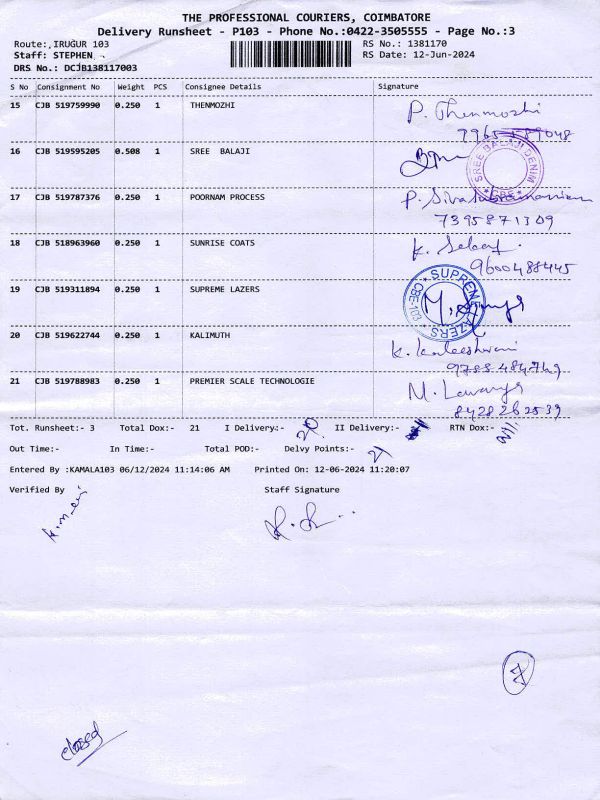 THE PROFESSIONAL COURIERS, COIMBATORE
Delivery Runsheet - P103 - Phone No.:0422-3505555 - Page No.:3
Route:,IRUGUR 103 RS No.: 1381170
Staff: STEPHEN RS Date: 12-Jun-2024
DRS No.: DCJB138117003
S No Consignment No Weight PCS Consignee Details Signature
15 CJB 519759990 0.250 1 THENMOZHI P. Thenmozhi
16 CJB 519595205 0.508 1 SREE BALAJI SREE BALAJI DENIM
17 CJB 519787376 0.250 1 POORNAM PROCESS P. Sivasubramaniam
7395871309
18 CJB 518963960 0.250 1 SUNRISE COATS K.
9600488445
19 CJB 519311894 0.250 1 SUPREME LAZERS SUPREME LAZERS CBE-103
20 CJB 519622744 0.250 1 KALIMUTH K.
9788484749
21 CJB 519788983 0.250 1 PREMIER SCALE TECHNOLOGIE M. Lavanya
8428262539
Tot. Runsheet:- 3 Total Dox:- 21 I Delivery:- 20 II Delivery:- RTN Dox:-
Out Time:- In Time:- Total POD:- Delvy Points:- 21
Entered By :KAMALA103 06/12/2024 11:14:06 AM Printed On: 12-06-2024 11:20:07
Verified By Staff Signature
7
closed